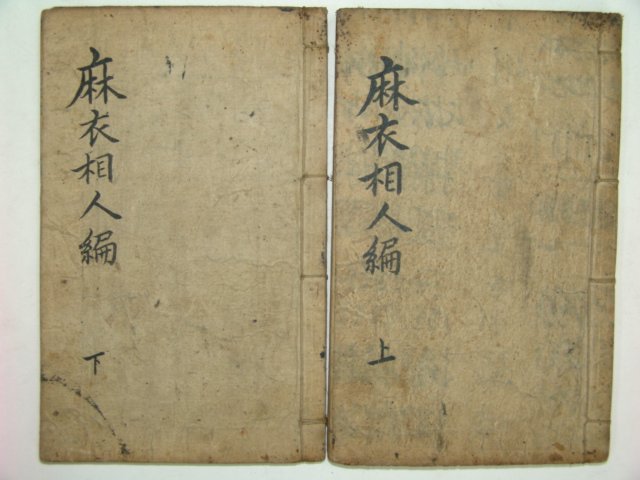 麻衣相人編
上
麻衣相人編
下